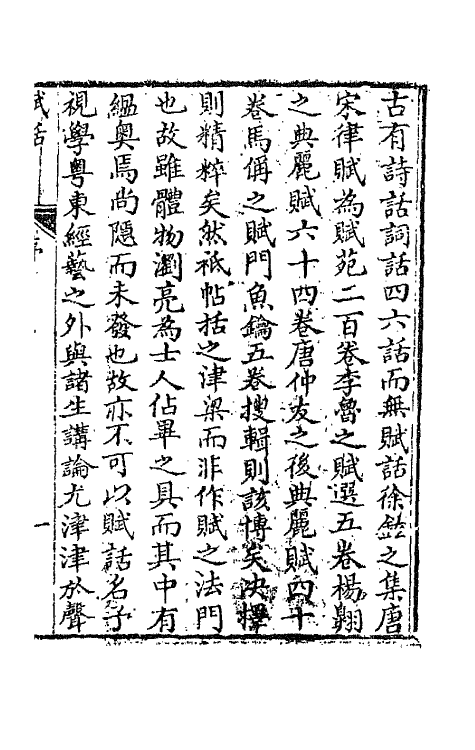 古有詩話詞話四六話而無賦話徐鍇之集唐
宋律賦為賦苑二百卷李魯之賦選五卷楊翱
之典麗賦六十四卷唐仲友之後典麗賦四十
卷馬偁之賦門魚鑰五卷搜輯則該博矣决擇
則精粹矣然祗帖括之津梁而非作賦之法門
也故雖體物瀏亮為士人佔畢之具而其中有
緼奥焉尚隠而未發也故亦不可以賦話名予
視學粤東經藝之外與諸生講論尤津津於聲
賦話 序 一